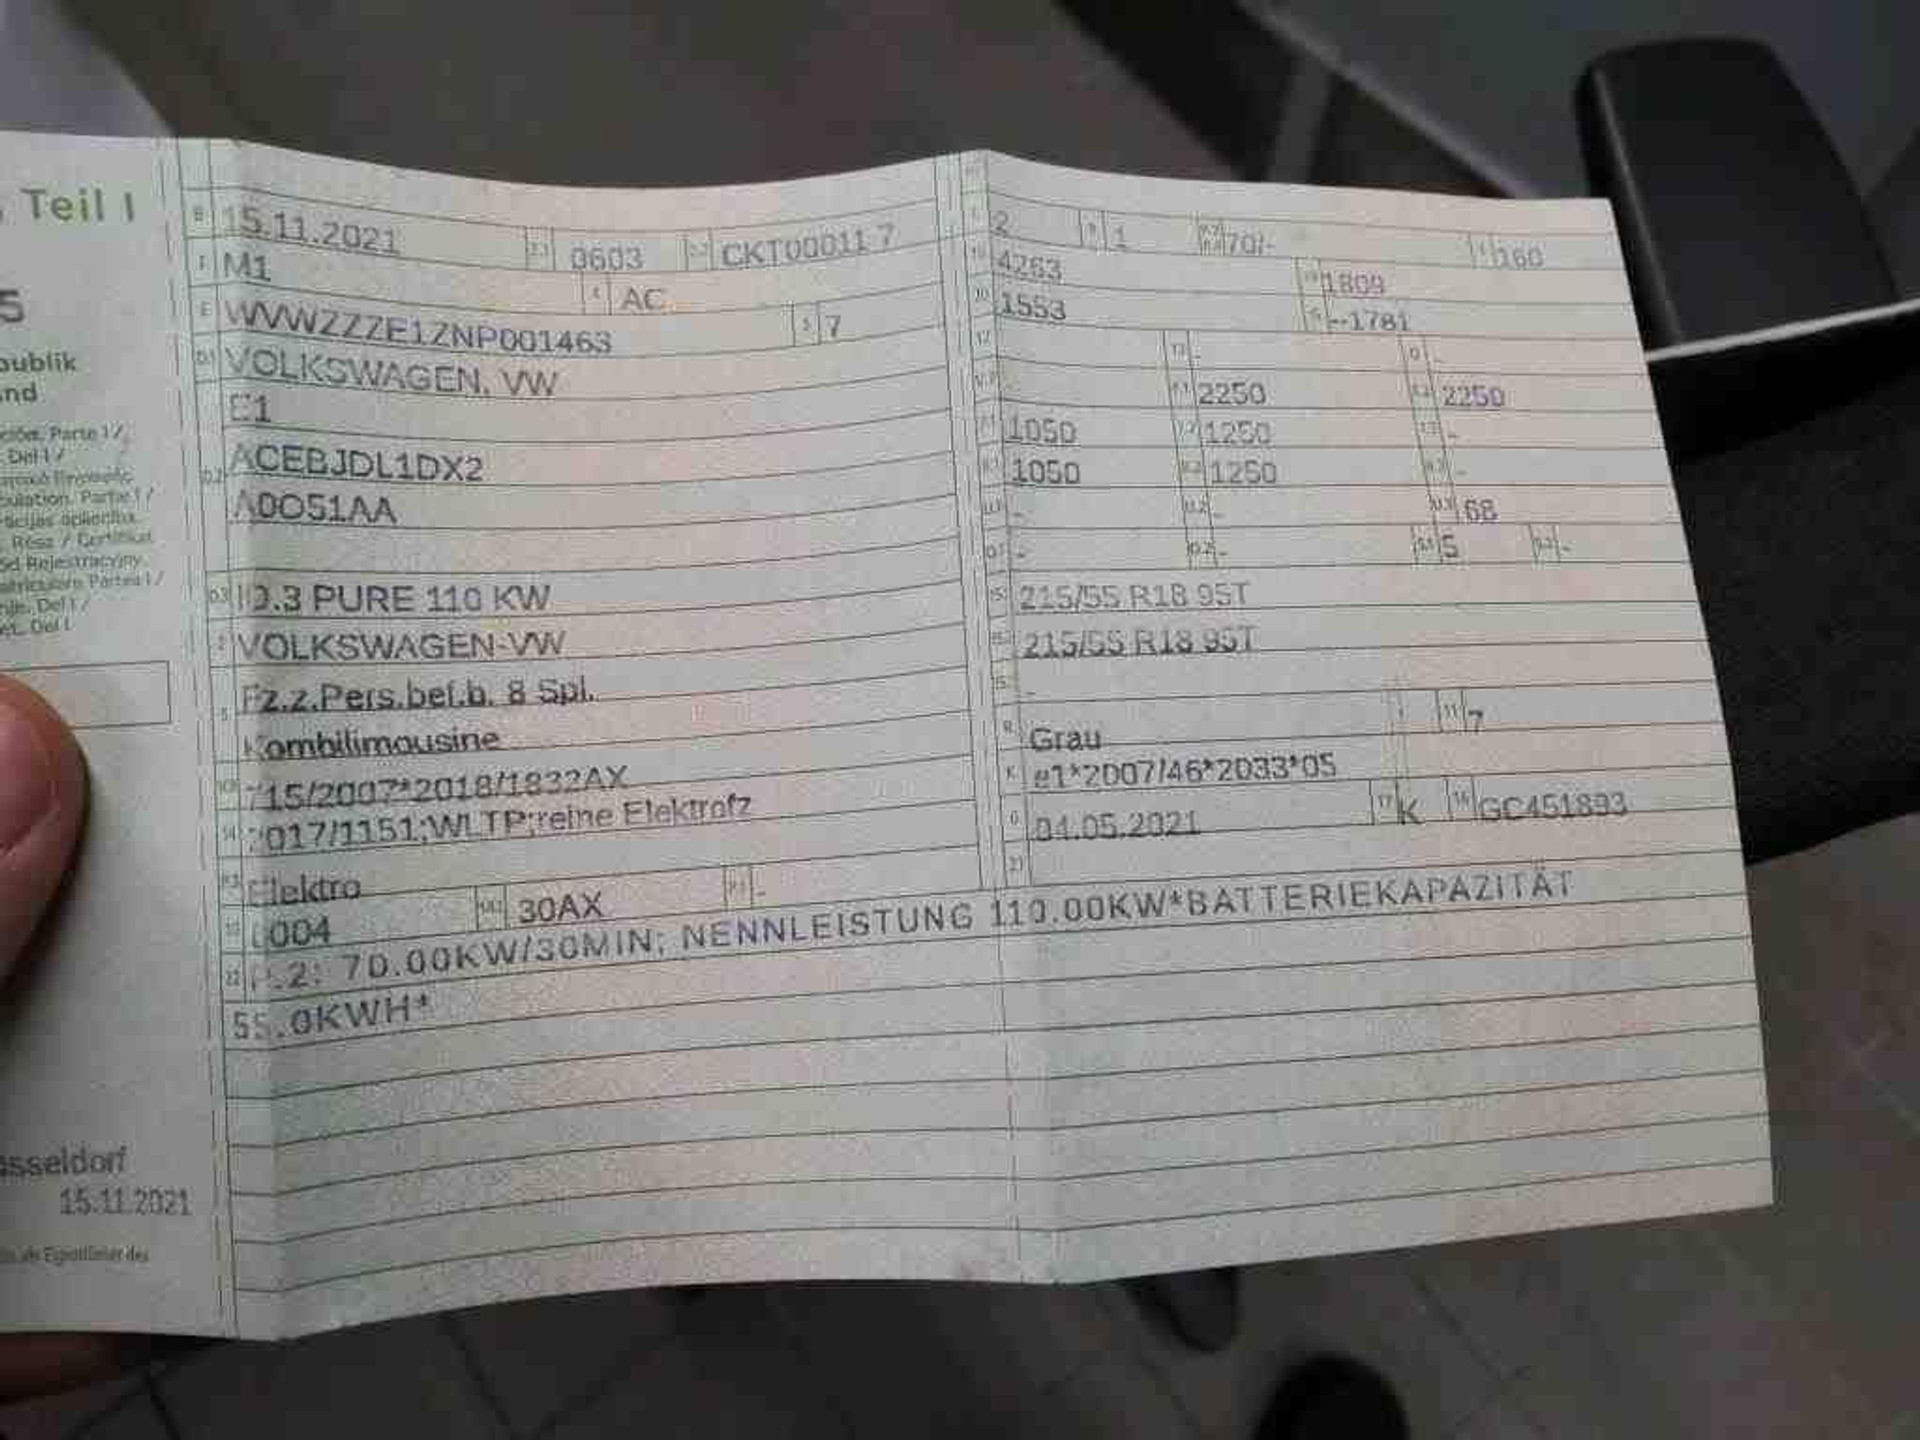 Teil I
5
publik
nd
Parte I /
Del I /
Parte I /
Rejestracyjny.
Del I /
Del I
asseldorf
15.11.2021
B 15.11.2021 2.1 0603 CKT00011 7
M1 AC
E WVWZZZE1ZNP001463 7
D.1 VOLKSWAGEN, VW
E1
D.2 ACEBJDL1DX2
A0O51AA
D.3 ID.3 PURE 110 KW
VOLKSWAGEN-VW
5 Fz.z.Pers.bef.b. 8 Spl.
Kombilimousine
715/2007*2018/1832AX
14 2017/1151;WLTP;reine Elektrofz
P.3 Elektro
10 0004 14.1 30AX P.1 -
22 P.2: 70.00KW/30MIN; NENNLEISTUNG 110.00KW*BATTERIEKAPAZITÄT
55.0KWH*
2 1 70/- 160
4263 1809
20 1553 --1781
12 13 - Q -
2250 2250
1050 1250 -
1050 1250 -
- U.2 - U.3 68
O.1 - O.2 - S.1 5 S.2 -
215/55 R18 95T
215/55 R18 95T
-
R Grau 11 7
K e1*2007/46*2033*05
6 04.05.2021 17 K 16 GC451893
21